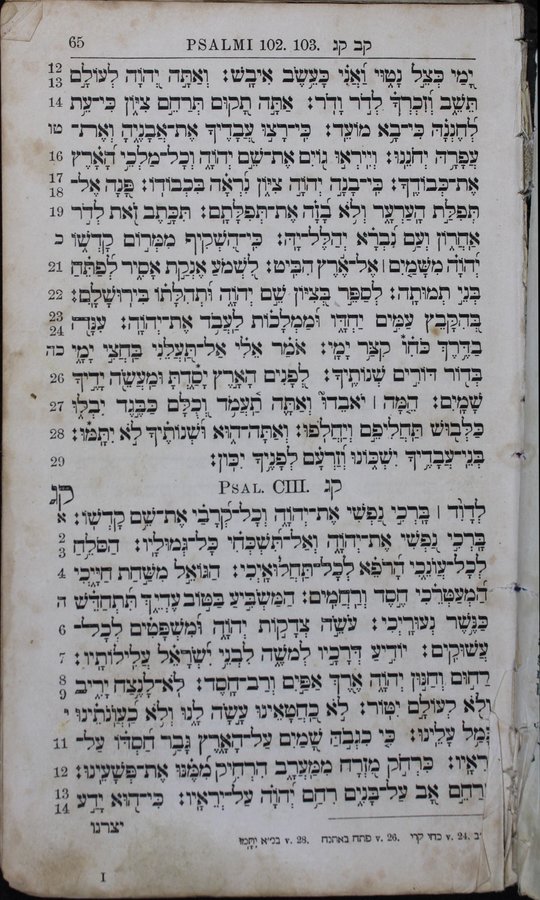 65 PSALMI 102. 103. קב קג
יָמַי כְּצֵל נָטוּי וַאֲנִי כָּעֵשֶׂב אִיבָשׁ׃ וְאַתָּה יְהוָה לְעוֹלָם 12 13
תֵּשֵׁב וְזִכְרְךָ לְדֹר וָדֹר׃ אַתָּה תָקוּם תְּרַחֵם צִיּוֹן כִּי־עֵת 14
לְחֶנְנָהּ כִּי־בָא מוֹעֵד׃ כִּי־רָצוּ עֲבָדֶיךָ אֶת־אֲבָנֶיהָ וְאֶת־ טו
עֲפָרָהּ יְחֹנֵנוּ׃ וְיִירְאוּ גוֹיִם אֶת־שֵׁם יְהוָה וְכָל־מַלְכֵי הָאָרֶץ 16
אֶת־כְּבוֹדֶךָ׃ כִּי־בָנָה יְהוָה צִיּוֹן נִרְאָה בִּכְבוֹדוֹ׃ פָּנָה אֶל־ 17 18
תְּפִלַּת הָעַרְעָר וְלֹא בָזָה אֶת־תְּפִלָּתָם׃ תִּכָּתֶב זֹאת לְדֹר 19
אַחֲרוֹן וְעַם נִבְרָא יְהַלֶּל־יָהּ׃ כִּי־הִשְׁקִיף מִמְּרוֹם קָדְשׁוֹ כ
יְהוָה מִשָּׁמַיִם ׀ אֶל־אֶרֶץ הִבִּיט׃ לִשְׁמֹעַ אֶנְקַת אָסִיר לְפַתֵּחַ 21
בְּנֵי תְמוּתָה׃ לְסַפֵּר בְּצִיּוֹן שֵׁם יְהוָה וּתְהִלָּתוֹ בִּירוּשָׁלִָם׃ 22
בְּהִקָּבֵץ עַמִּים יַחְדָּו וּמַמְלָכוֹת לַעֲבֹד אֶת־יְהוָה׃ עִנָּה 23 24
בַדֶּרֶךְ כֹּחִוֹ קִצַּר יָמָי׃ אֹמַר אֵלִי אַל־תַּעֲלֵנִי בַּחֲצִי יָמָי כה
בְּדוֹר דּוֹרִים שְׁנוֹתֶיךָ׃ לְפָנִים הָאָרֶץ יָסַדְתָּ וּמַעֲשֵׂה יָדֶיךָ 26
שָׁמָיִם׃ הֵמָּה ׀ יֹאבֵדוּ וְאַתָּה תַעֲמֹד וְכֻלָּם כַּבֶּגֶד יִבְלוּ 27
כַּלְּבוּשׁ תַּחֲלִיפֵם וְיַחֲלֹפוּ׃ וְאַתָּה־הוּא וּשְׁנוֹתֶיךָ לֹא יִתָּמּוּ׃ 28
בְּנֵי־עֲבָדֶיךָ יִשְׁכּוֹנוּ וְזַרְעָם לְפָנֶיךָ יִכּוֹן׃ 29
PSAL. CIII. קג קג
לְדָוִד ׀ בָּרְכִי נַפְשִׁי אֶת־יְהוָה וְכָל־קְרָבַי אֶת־שֵׁם קָדְשׁוֹ׃ א
בָּרְכִי נַפְשִׁי אֶת־יְהוָה וְאַל־תִּשְׁכְּחִי כָּל־גְּמוּלָיו׃ הַסֹּלֵחַ 2 3
לְכָל־עֲוֹנֵכִי הָרֹפֵא לְכָל־תַּחֲלוּאָיְכִי׃ הַגּוֹאֵל מִשַּׁחַת חַיָּיְכִי 4
הַמְעַטְּרֵכִי חֶסֶד וְרַחֲמִים׃ הַמַּשְׂבִּיעַ בַּטּוֹב עֶדְיֵךְ תִּתְחַדֵּשׁ ה
כַּנֶּשֶׁר נְעוּרָיְכִי׃ עֹשֵׂה צְדָקוֹת יְהוָה וּמִשְׁפָּטִים לְכָל־ 6
עֲשׁוּקִים׃ יוֹדִיעַ דְּרָכָיו לְמֹשֶׁה לִבְנֵי יִשְׂרָאֵל עֲלִילוֹתָיו׃ 7
רַחוּם וְחַנּוּן יְהוָה אֶרֶךְ אַפַּיִם וְרַב־חָסֶד׃ לֹא־לָנֶצַח יָרִיב 8 9
וְלֹא לְעוֹלָם יִטּוֹר׃ לֹא כַחֲטָאֵינוּ עָשָׂה לָנוּ וְלֹא כַעֲוֹנֹתֵינוּ י
גָּמַל עָלֵינוּ׃ כִּי כִגְבֹהַּ שָׁמַיִם עַל־הָאָרֶץ גָּבַר חַסְדּוֹ עַל־ 11
יְרֵאָיו׃ כִּרְחֹק מִזְרָח מִמַּעֲרָב הִרְחִיק מִמֶּנּוּ אֶת־פְּשָׁעֵינוּ׃ 12
כְּרַחֵם אָב עַל־בָּנִים רִחַם יְהוָה עַל־יְרֵאָיו׃ כִּי־הוּא יָדַע 13 14
יצרנו
v. 24. כחי קרי v. 26. פתח באתנח v. 28. בנ״א יִתָּמוּ
I